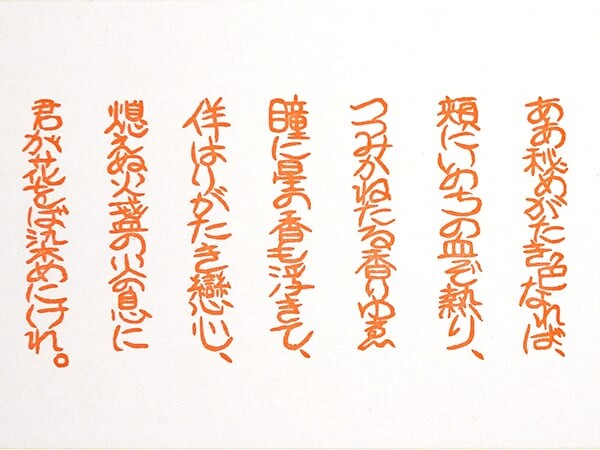 ああ秘めがたき色なれば、
頬にいのちの血ぞ熱り、
つつみかねたる香りゆゑ
瞳に星の香も浮きて、
佯はりがたき戀心、
熄えぬ火盞の火の息に
君が花をば染めにけれ。